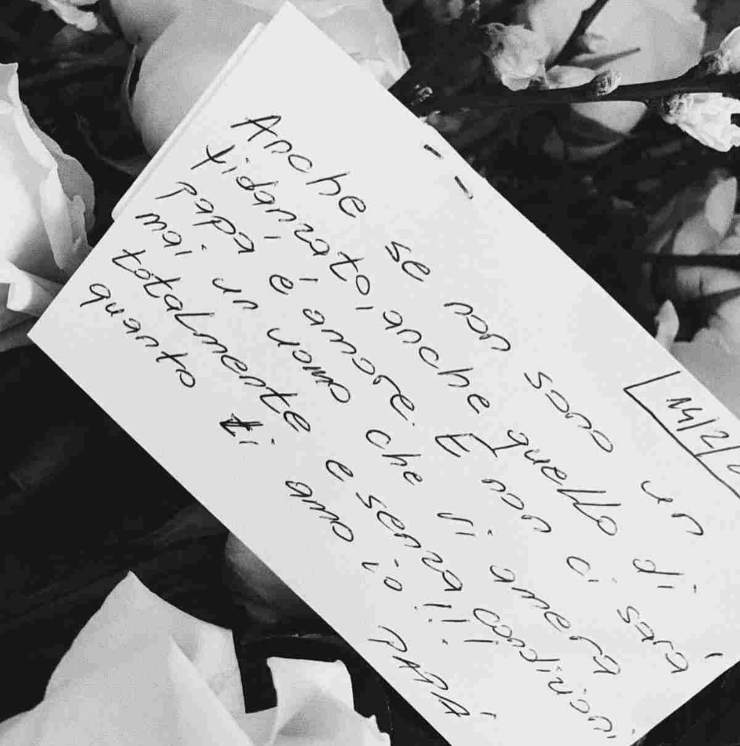 14/2/
Anche se non sono un
fidanzato, anche quello di
papà è amore. E non ci sarà
mai un uomo che ti amerà
totalmente e senza condizioni
quanto ti amo io!!!
PAPÀ